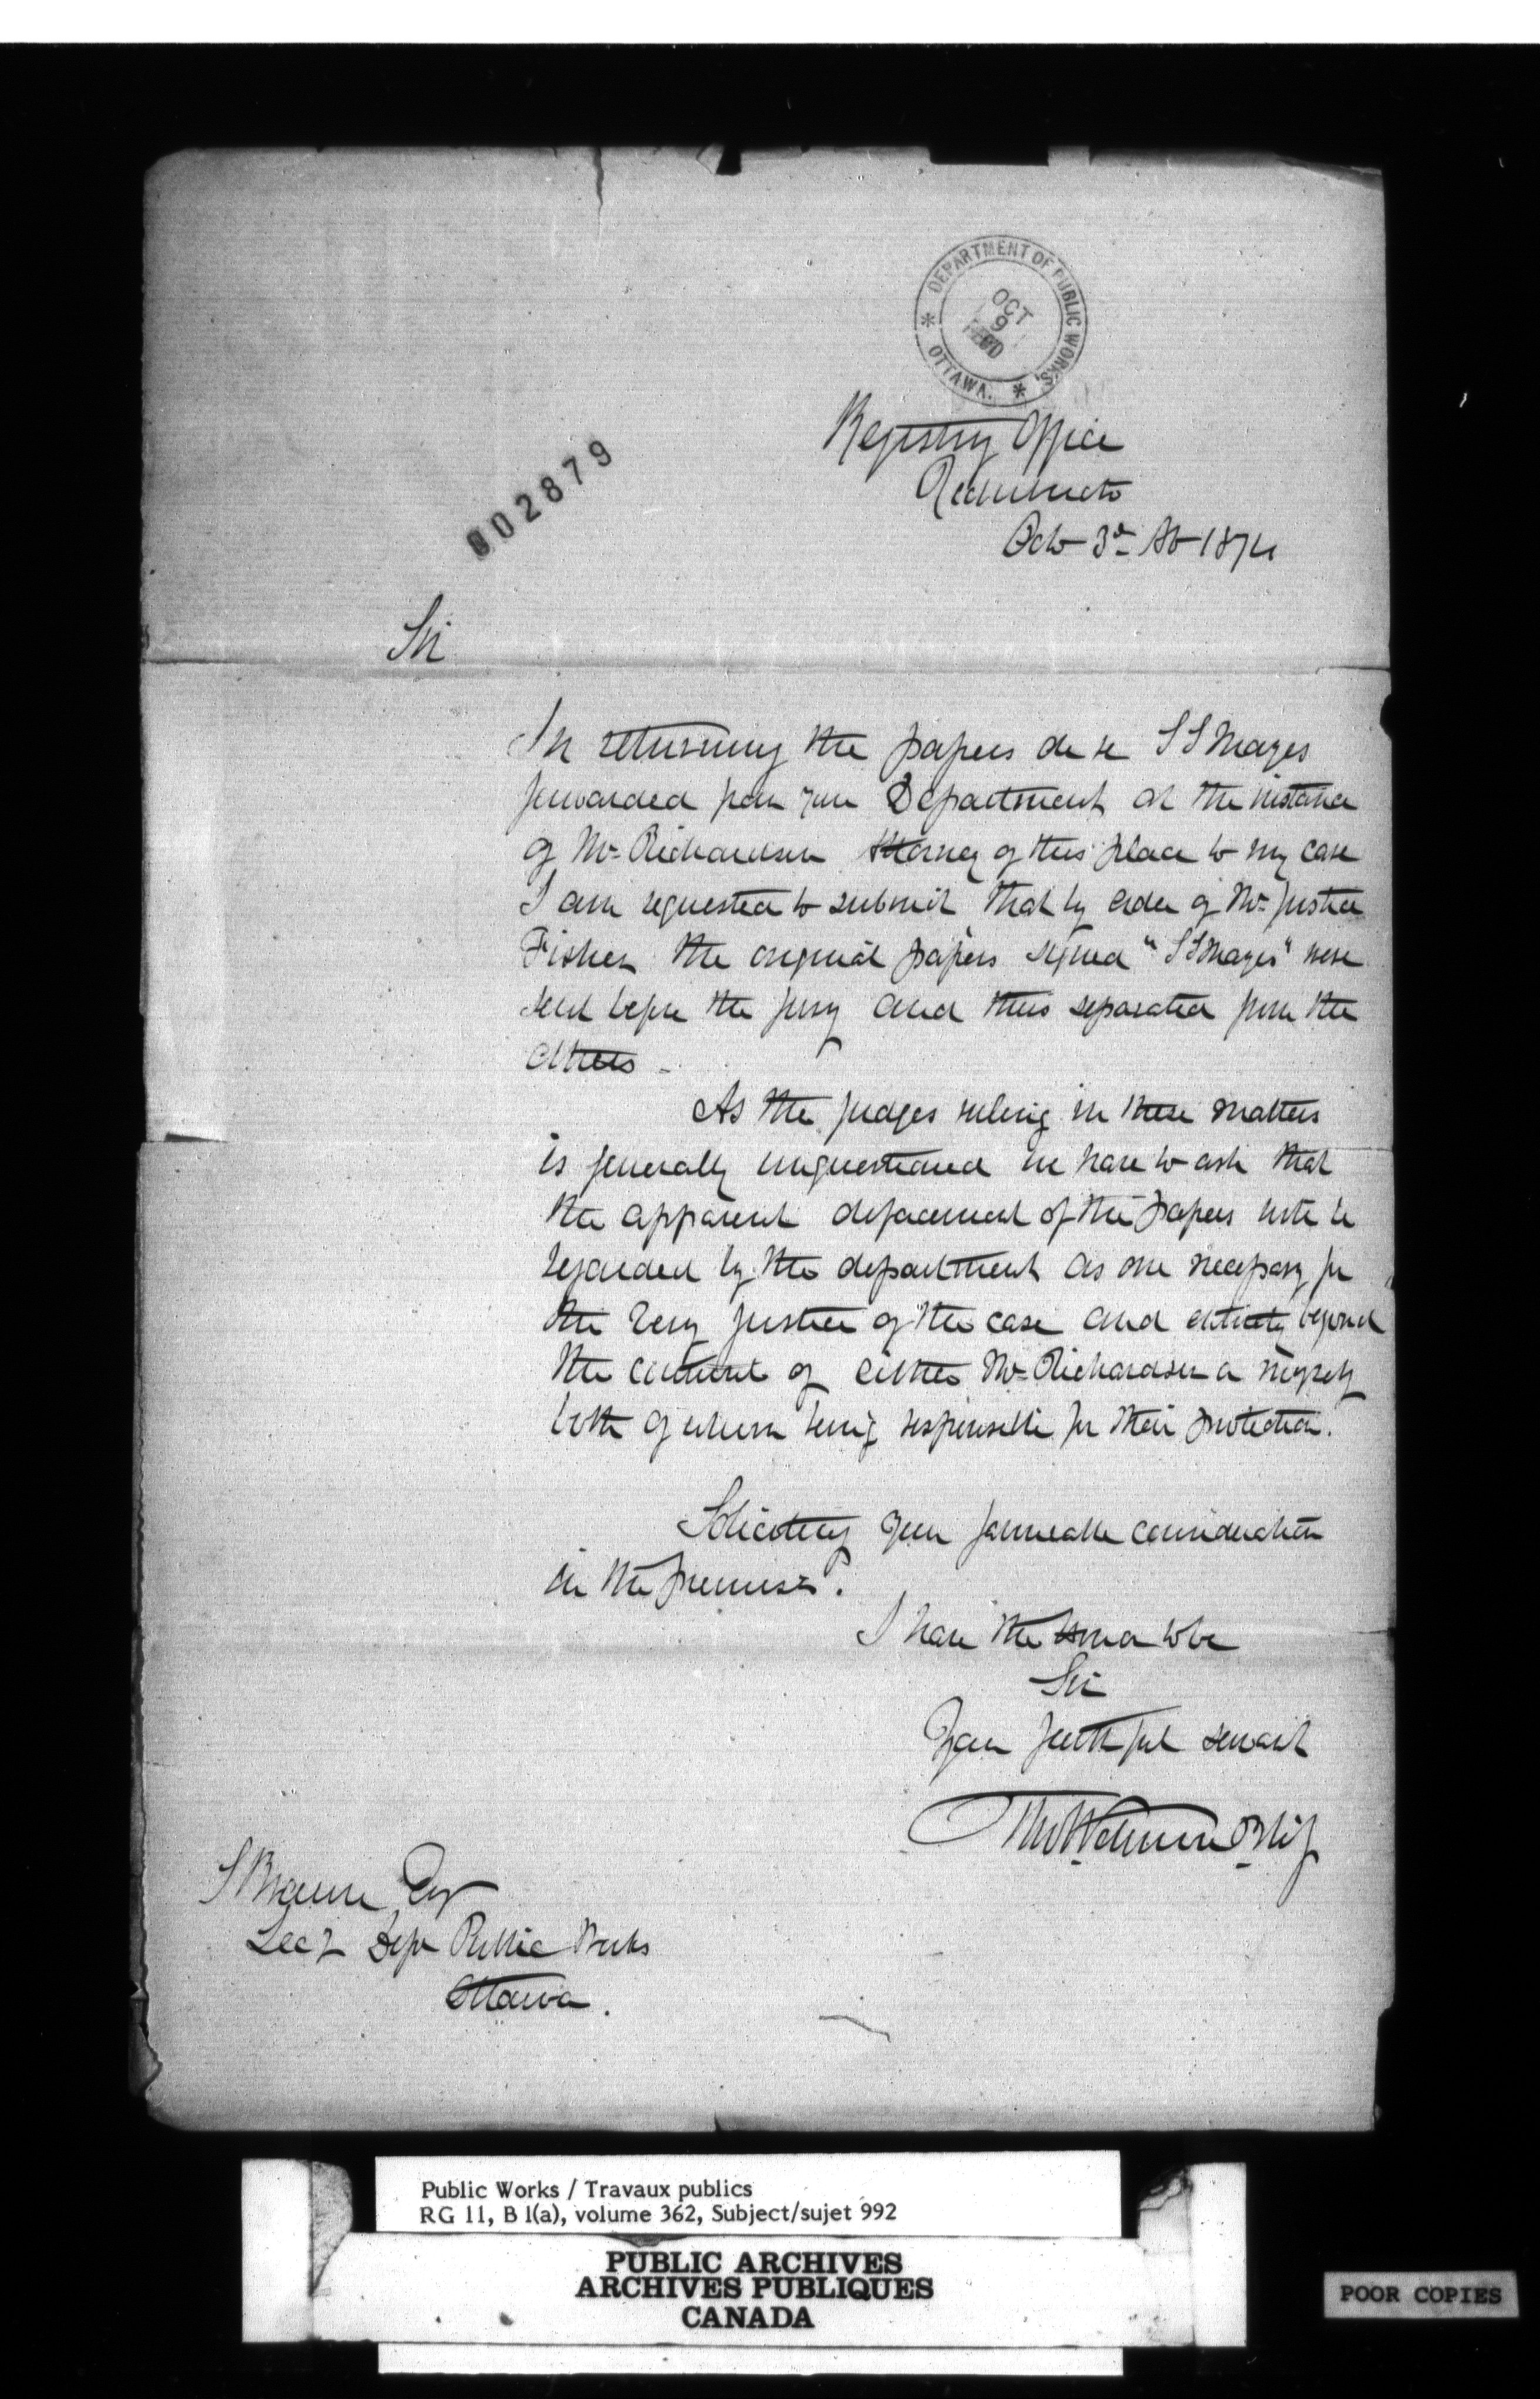 DEPARTMENT OF PUBLIC WORKS. OTTAWA.
OCT
9
REC'D
Registry Office
Octo 3d AD 1874
002879
Sir
In returning the papers de re S S Mayes
forwarded from your Department at the instance
of Mr Richardson Attorney of this place to my care
I am requested to submit that by order of Mr Justice
Fisher the original papers signed "S S Mayes" were
sent before the jury and thus separated from the
others -
As the judges ruling in these matters
is generally unquestioned we have to ask that
the apparent defacement of the papers will be
regarded by the department as one necessary for
the very justice of the case and entirely beyond
the control of either Mr Richardson or myself
both of whom being responsible for their protection.
Soliciting your favourable consideration
in the premises.
I have the honor to be
Sir
Your faithful servant
F Braun Esq
Secy Dept Public Works
Ottawa.
Public Works / Travaux publics
RG 11, B 1(a), volume 362, Subject/sujet 992
PUBLIC ARCHIVES
ARCHIVES PUBLIQUES
CANADA
POOR COPIES